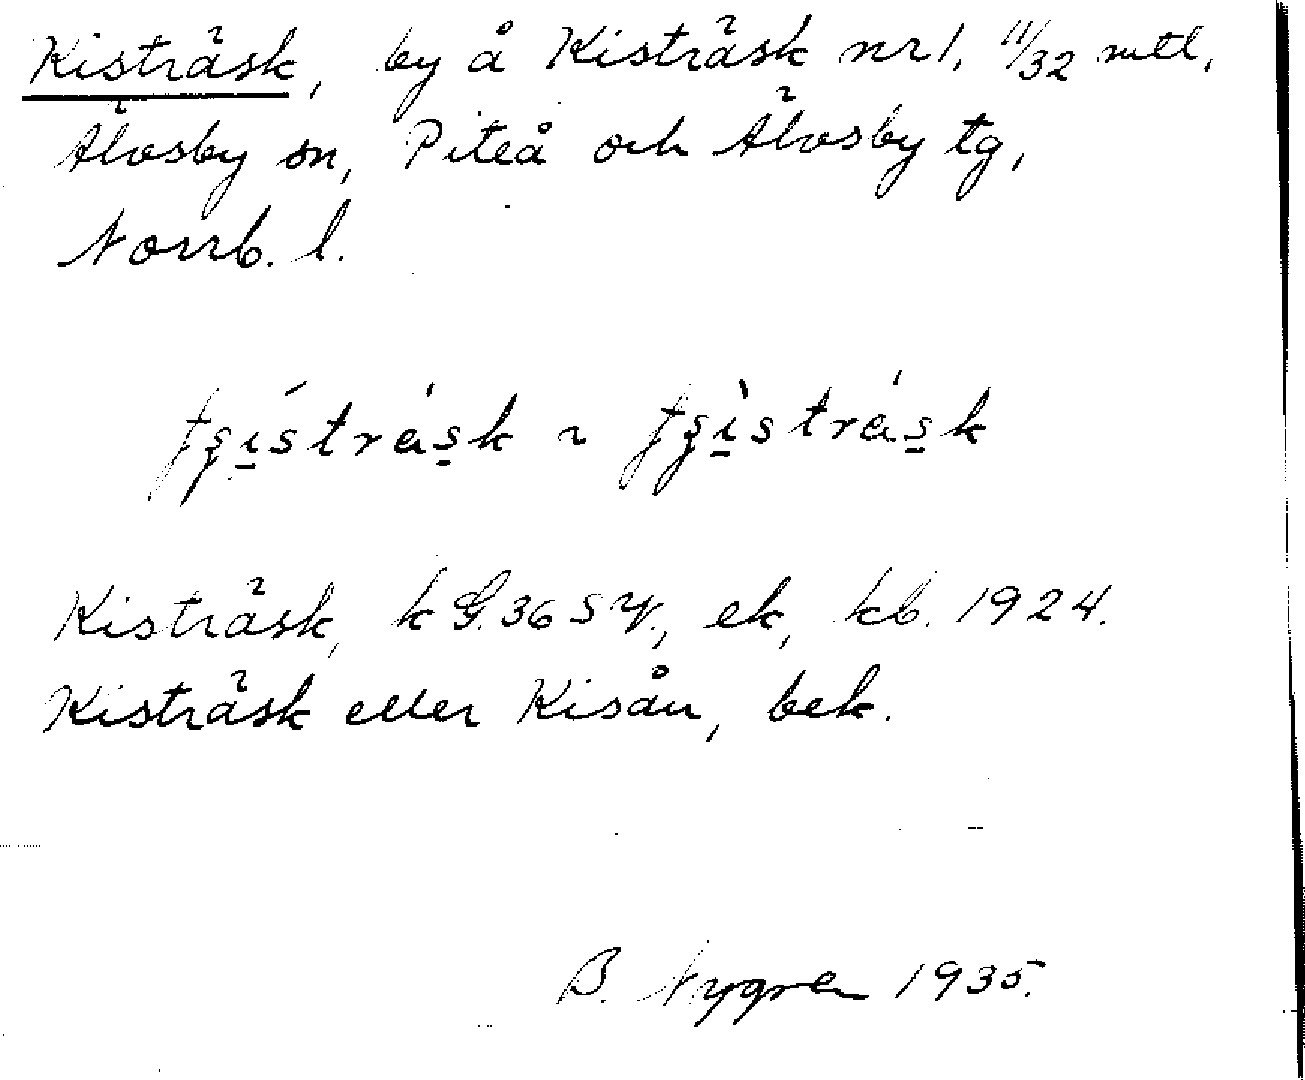 Kisträsk, by å Kisträsk nr 1, 11/32 mtl,
Älvsby sn, Piteå och Älvsby tg,
Norrb. l.
Kisträsk, k G. 36 SV, ek, kb. 1924.
Kisträsk eller Kisån, bek.
B. Nygren 1935.